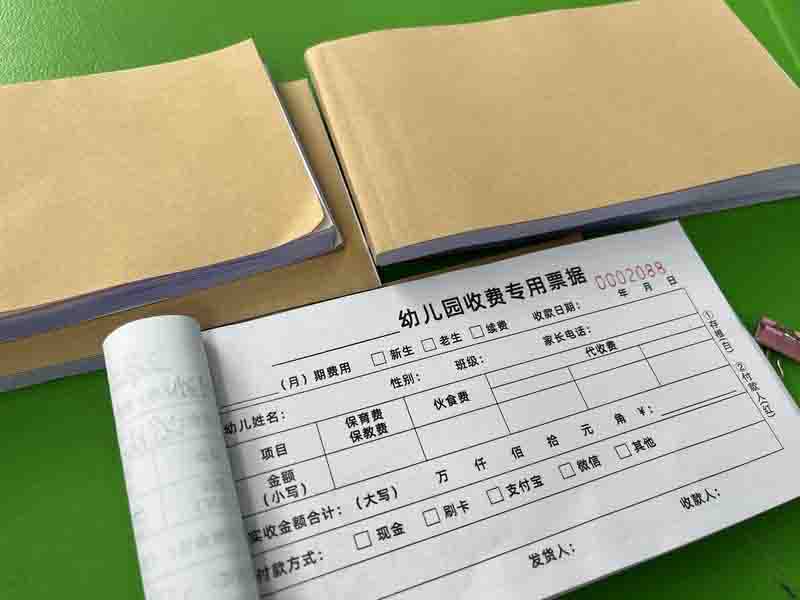 幼儿园收费专用票据 0002088
(月)期费用 □新生 □老生 □续费 收款日期: 年 月 日
幼儿姓名: 性别: 班级: 家长电话:
项目 保育费 保教费 伙食费 代收费
金额(小写)
实收金额合计:(大写) 万 仟 佰 拾 元 角 ¥:
付款方式: □现金 □刷卡 □支付宝 □微信 □其他
发货人: 收款人:
①存根(白) ②付款人(红)